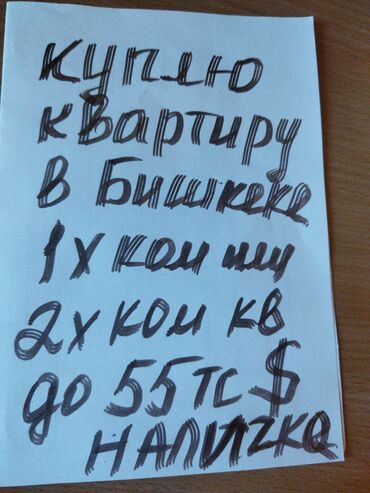 куплю
квартиру
в Бишкеке
1х ком или
2х ком кв
до 55тс $
НАЛИЧКА